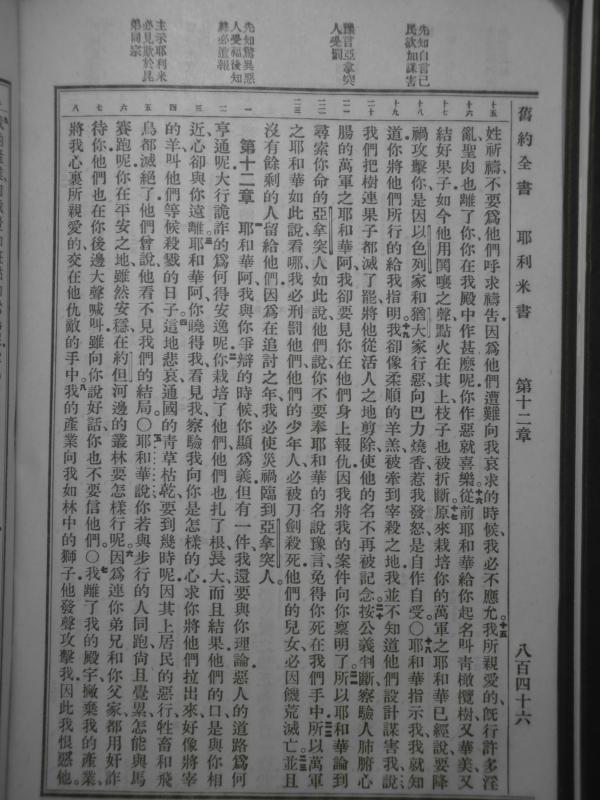 舊約全書　耶利米書　第十二章　八百四十六
先知自言已民欲加謀害
豫言亞拿突人受罰
先知驚異惡人受福後知終必遭報
主示耶利米必見欺於昆弟同宗
十五 十六 十七 十八 十九 二十 二一 二二 二三 一 二 三 四 五 六 七 八
姓祈禱不要爲他們呼求禱告因爲他們遭難向我哀求的時候我必不應允。十五我所親愛的、旣行許多淫
亂聖肉也離了你你在我殿中作甚麽呢你作惡就喜樂。十六從前耶和華給你起名叫靑橄欖樹又華美又
結好果子如今他用閧嚷之聲點火在其上枝子也被折斷。十七原來栽培你的萬軍之耶和華已經說要降
禍攻擊你是因以色列家和猶大家行惡向巴力燒香惹我發怒是自作自受。〇十八耶和華指示我我就知
道你將他們所行的給我指明。十九我卻像柔順的羊羔被牽到宰殺之地我並不知道他們設計謀害我說
我們把樹連果子都滅了罷將他從活人之地剪除使他的名不再被記念。二十按公義判斷察驗人肺腑心
腸的萬軍之耶和華阿我卻要見你在他們身上報仇因我將我的案件向你稟明了。二一所以耶和華論到
尋索你命的亞拿突人如此說他們說你不要奉耶和華的名說豫言免得你死在我們手中。二二所以萬軍
之耶和華如此說看哪我必刑罰他們他們的少年人必被刀劍殺死他們的兒女必因饑荒滅亡。二三並且
沒有餘剩的人留給他們因爲在追討之年我必使災禍臨到亞拿突人。
第十二章　一耶和華阿我與你爭辯的時候你顯爲義但有一件我還要與你理論惡人的道路爲何
亨通呢大行詭詐的爲何得安逸呢。二你栽培了他們他們也扎了根長大而且結果他們的口是與你相
近心卻與你遠離。三耶和華阿你曉得我看見我察驗我向你是怎樣的心求你將他們拉出來好像將宰
的羊叫他們等候殺戮的日子。四這地悲哀通國的靑草枯乾要到幾時呢因其上居民的惡行牲畜和飛
鳥都滅絕了他們曾說他看不見我們的結局。〇五耶和華說你若與步行的人同跑尙且覺累怎能與馬
賽跑呢你在平安之地雖然安穩在約但河邊的叢林要怎樣行呢。六因爲連你弟兄和你父家都用奸詐
待你他們也在你後邊大聲喊叫雖向你說好話你也不要信他們。〇七我離了我的殿宇撇棄我的產業、
將我心裏所親愛的交在他仇敵的手中。八我的產業向我如林中的獅子他發聲攻擊我因此我恨惡他。